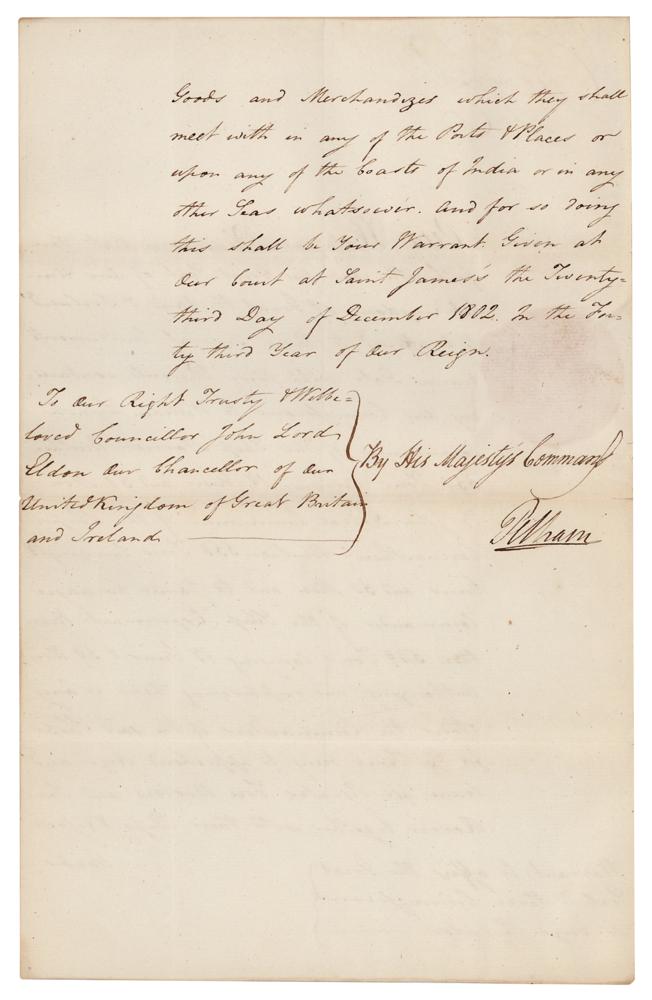 Goods and Merchandizes which they shall
meet with in any of the Ports & Places or
upon any of the Coasts of India or in any
other Seas whatsoever. And for so doing
this shall be Your Warrant. Given at
Our Court at Saint James's the Twenty=
third Day of December 1802. In the For=
ty third Year of Our Reign.
To Our Right Trusty & Welbe=
loved Councillor John Lord
Eldon Our Chancellor of Our
United Kingdom of Great Britain
and Ireland
By His Majesty's Command
Pelham